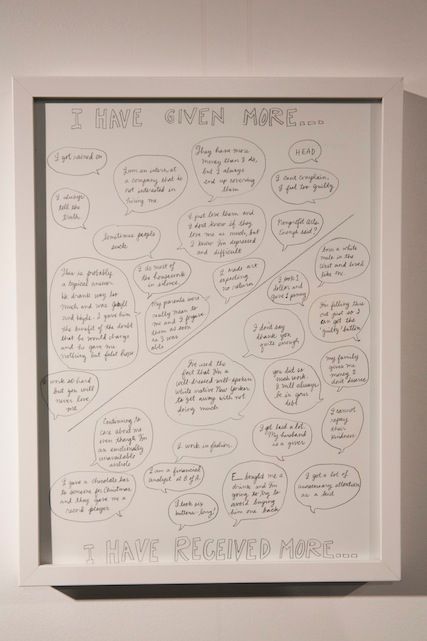 I HAVE GIVEN MORE...
I got named on
I am an intern at
a company that is
not interested in
hiring me.
They have more
money than I do,
but I always
end up covering
them
HEAD
I can't complain,
I feel too guilty
I always
tell the
truth
Sometimes people
suck
I just love them and
I don't know if they
love me as much, but
I know I'm depressed
and difficult
Nonprofit Arts.
Enough said?
I am a white
male in the
West and loved
like me
This is probably
a typical answer.
He drank way too
much and was
and I gave him
the benefit of the doubt
that he would change
and he gave me
nothing but false hope
I do most of
the housework
in silence.
I made art
expecting
no return
I took 1
dollar and
gave 1 penny
My parents were
really mean to
me and I forgave
them as soon
as I was
able
I'm filling this
out just so I
can get the
guilty button
I don't say
thank you
quite enough
work so hard
but you will
never love
me
I've used the
fact that I'm a
well-dressed well-spoken
white native New Yorker
to get away with not
doing much
you did so
much work
I will always
be in your
debt
my family
gives me
money I
don't deserve
Continuing to
care about me
even though I'm
an emotionally
unavailable
asshole
I work in fashion.
I got laid a lot.
My husband
is a giver
I cannot
repay
their
kindness
I gave a chocolate bar
to someone for Christmas
and they gave me a
record player
I am a financial
analyst at B of A
I took six
buttons - long!
E__ bought me a
drink and I'm
going to try to
avoid buying
him one back
I got a lot of
unnecessary attention
as a kid
I HAVE RECEIVED MORE...